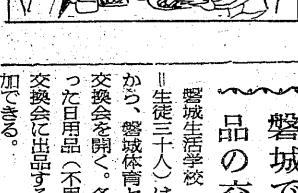 磐城で
品の交
磐城生活学校
＝生徒三十人）は
から、磐城体育セ
交換会を開く。各
った日用品（不用
交換会に出品する
加できる。